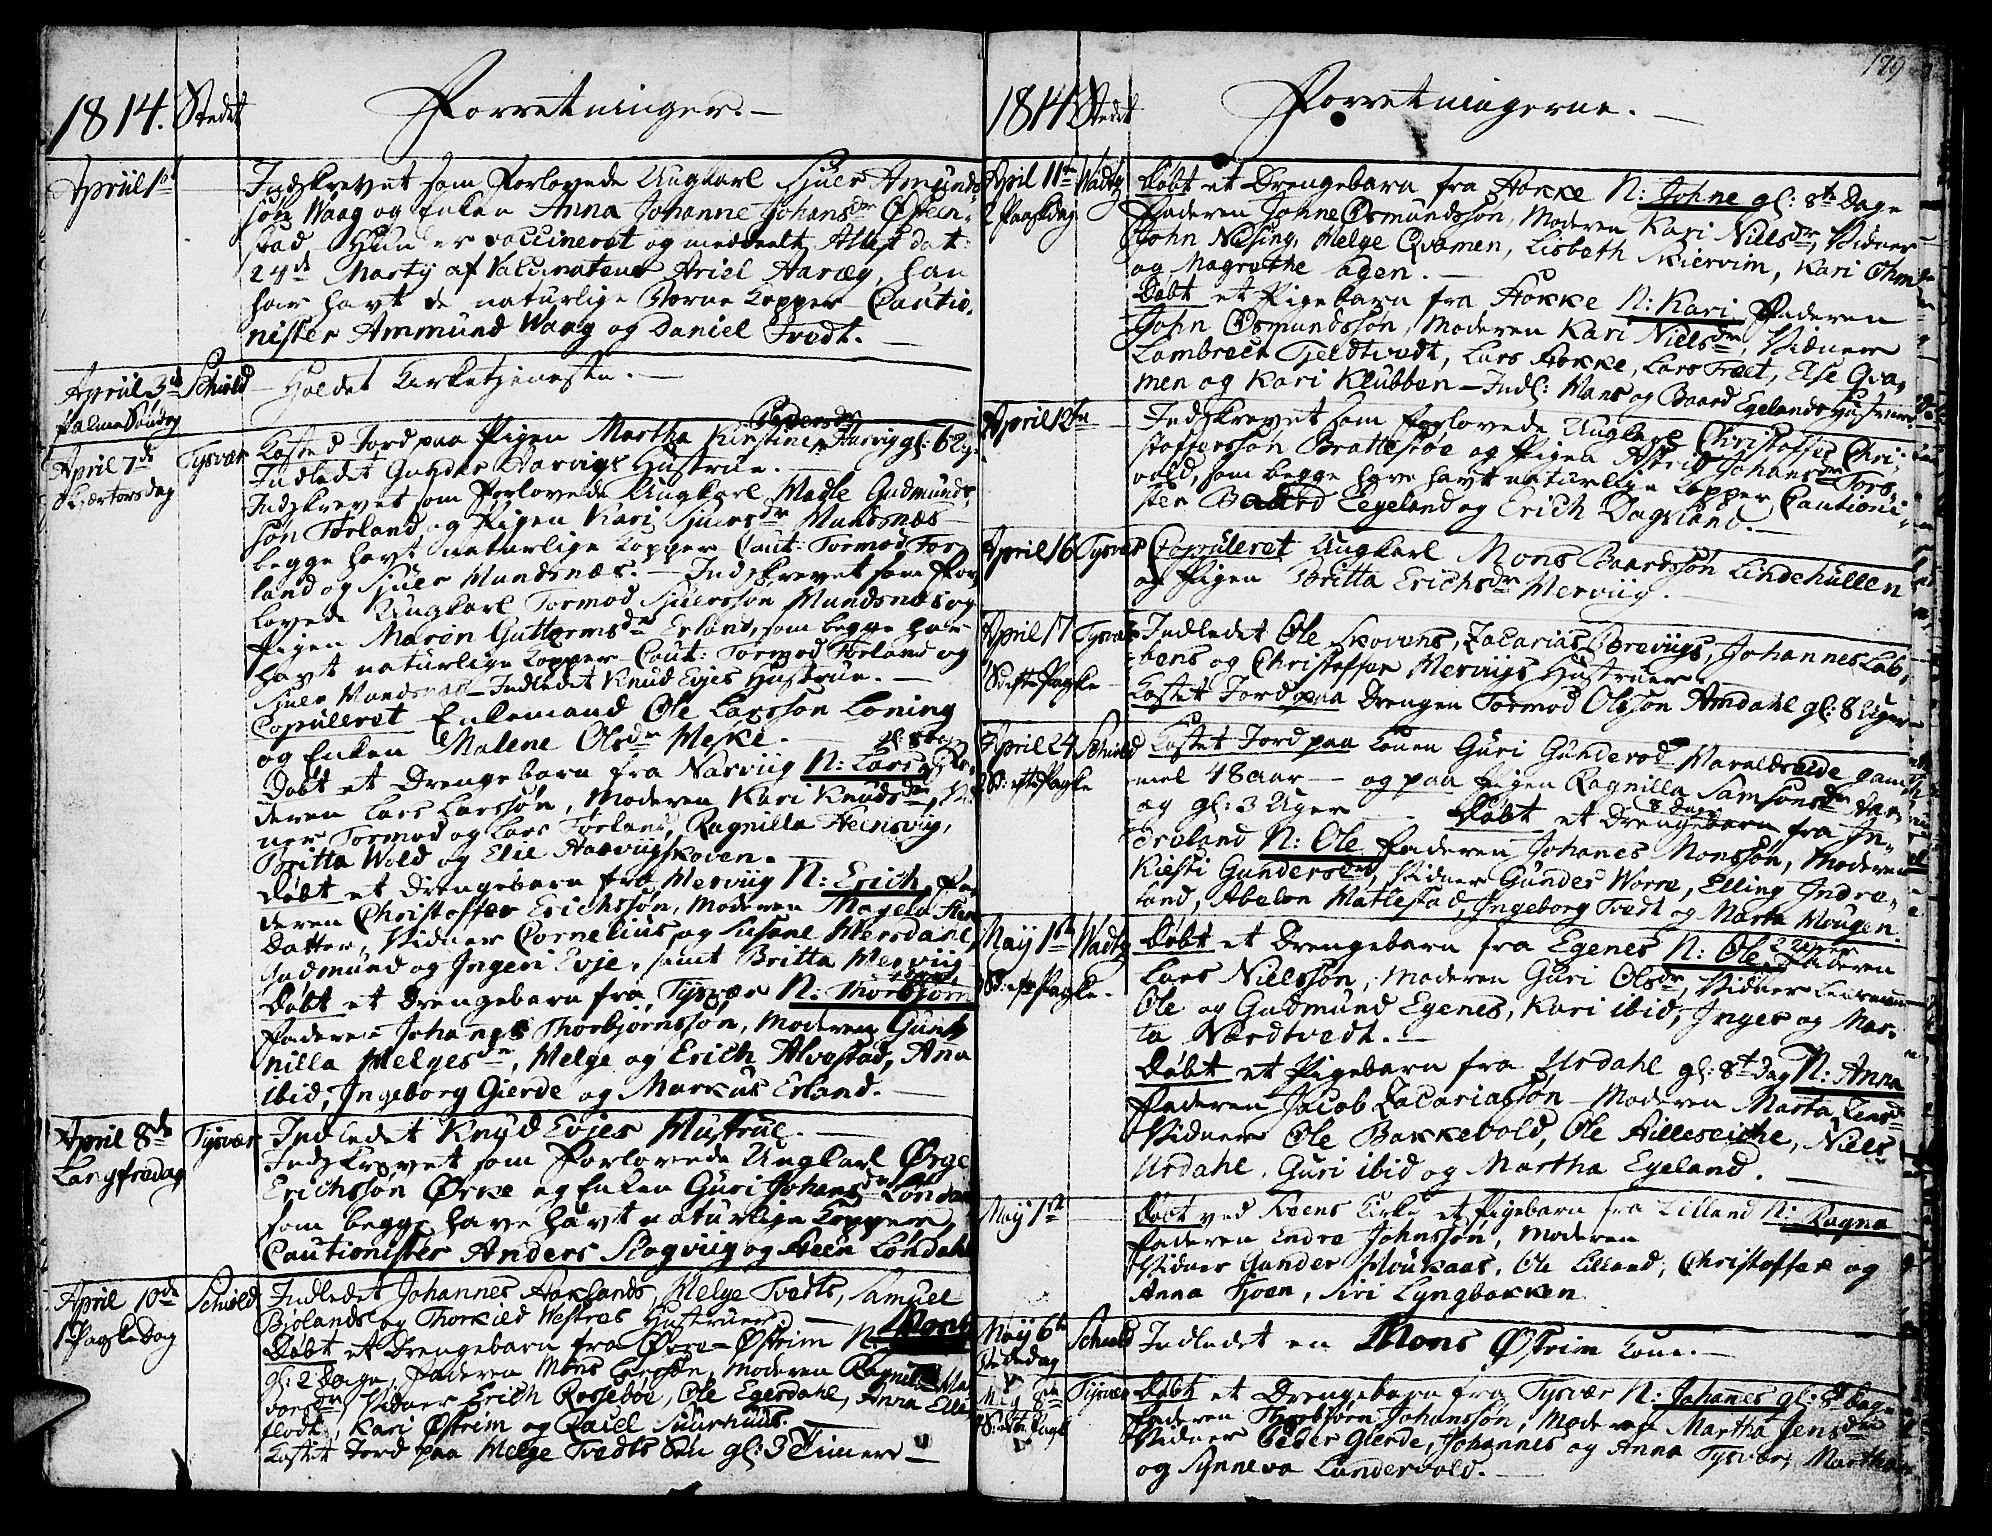 1814. Stedet Forretninger. —
Apriil 1st Indskrevet som Forlovede Ungkarl Sjuer Amunds
søn Waag og Enken Anna Johanne Johansdr Østeen-
stad Hun er vaccineret og meddeelt Attest dat:
24de Marty af Vaccinateur Ariel Aaræg, han
har havt de naturlige Børne Kopper Cautio-
nister Ammund Waag og Daniel Tvedt. —
Apriil 3de Schiold Holdet Kirketjenesten. —
Palme Søndag
Pedersdr
April 7de Tysvær Kasted Jord paa Pigen Martha Kirstine Aarvig gl: 6 Uger
Skjærtorsdag Indledet Gunder Aarvigs Hustrue. —
Indskrevet som Forlovede Ungkarl Madle Gudmunds
søn Førland og Pigen Kari Sjuersdr Mundsnæs
begge havt naturlige Kopper Caut: Tormod Før-
land og Sjuer Mundsnæs. — Indskrevet som For
lovede Ungkarl Tormod Sjuersson Mundsnæs og
Pigen Maron Guttormsdr Erland, som begge have
havt naturlige Kopper Caut: Tormod Førland og
Sjuer Mundsnæs — Indledet Knud Evjes Hustrue. —
Copuleret Enkemand Ole Larsson Loning
og Enken Malene Olsdr Meske. —
Døbt et Drengebarn fra Narviig N: Lars Fa-
deren Lars Larssøn, Moderen Kari Knudsdr, Vid
ner Tormod og Lars Førland, Ragnilla Heinsvig,
Britta Wold og Elie Aarviigskoven. —
Døbt et Drengebarn fra Merviig N: Erich, Fa
deren Christoffer Erichssøn, Moderen Magela Sten
Datter, Vidner Cornelius og Susane Mersdahl,
Gudmund og Ingeri Evje, samt Britta Merviig
Døbt et Drengebarn fra Tysvær N: Thorbjørn
Faderen Johanes Thorbjørnssøn, Moderen Gun
nilla Helgesdr, Helge og Erich Alvestad, Ana
ibid, Ingeborg Gierde og Markus Erland. —
April 8de Tysvær Indledet Knud Evjes Hustrue. —
Langfredag Indskrevet som Forlovede Ungkarl Ørge
Erichssøn Ørke og Enken Guri Johansdr Løndal
som begge have havt naturlige Kopper
Cautionister Anders Slogviig og Steen Løndahl
April 10de Schiold Indledet Johannes Aaklands, Helge Tvedts, Samuel
1 Paaskedag Bjolands og Thorkild Westres Hustruer —
Døbt et Drengebarn fra Øvre Østrim N: Mons
gl: 2 Dage, Faderen Mons Larssøn, Moderen Ragnilla Hal
dorsdr, Vidner Erich Rosseboe, Ole Egesdahl, Anna Elle
flodt, Kari Østrim og Raell Suurhuus. —
Kastet Jord paa Helge Tvedts Søn gl: 3 Timer —
179
1814 Stedet Forretningerne. —
April 11te Wadtz Døbt et Drengebarn fra Hokke N: Johne gl: 8te Dage
2 Paaskdag Faderen Johne Osmundssøn, Moderen Kari Nillsdr, Vidner
John Nesing, Helge Qvamen, Lisbeth Skiervim, Kari
og Magrethe Aagen. —
Døbt et Pigebarn fra Hokke N: Kari Faderen
John Osmundssøn, Moderen Kari Nielsdr, Vidner
Lambrect Tjeldtvedt, Lars Hokke, Lars Træt, Else Qva-
men og Kari Klubben — Indl: Mons og Baard Egelands Hustruer
April 12te Indskrevet som Forlovede Ungkarl Christoffer Chri-
stoffersson Brattestøe og Pigen Astrid Johansdr Tors-
vold, som begge have havt naturlige Kopper Cautioni-
ster Baard Eegeland og Erich Dagsland. —
April 16 Tysvær Copuleret Ungkarl Mons Baardssøn Lindehullen
og Pigen Britta Erichsdr Merviig. —
April 17 Tysvær Indledet Ole Skovens, Zacarias Breviigs, Johannes Lab-
bens og Christoffer Mervigs Hustruer.
Kastet Jord paa Drengen Tormod Olsson Amdahl gl: 8 Uger
April 24 Schiold Kastet Jord paa Konen Guri Gundersdr Haraldseide gam
mel 48 aar — og paa Pigen Ragnilla Samsonsdr
og gl: 3 Uger Døbt et Drengebarn fra In-
8 Dage
dreland N: Ole Faderen Johanes Monssøn, Moderen
Kiesti Gundersdr, Vidner Gunder Worre, Elling Indre-
land, Abelon Matlestad, Ingeborg Tvedt og Marta Hougen.
May 1ste Wadtz Døbt et Drengebarn fra Egenes N: Ole 2 Uger Faderen
Lars Nielssøn, Moderen Guri Olsdr, Vidner Lensmand
Ole og Gudmund Egenes, Kari ibid, Inger og Mar-
ta Nærdtvedt. —
Døbt et Pigebarn fra Urdahl gl: 8te Dag N: Anna
Faderen Jacob Zacariassøn — Moderen Marta Jensdr
Vidner Ole Bakkevold, Ole Hilleseiche, Niels
Urdahl, Guri ibid og Martha Egeland. —
May 1st Døbt ved Skoens Kirke et Pigebarn fra Lilland N: Ragna
Faderen Endre Johnssøn, Moderen
Vidner Gunder Houkaas, Ole Lilland, Christoffer og
Anna Tjoen, Siri Lyngbakken
May 6te Schiold Indledet en Mons Østrim Kone. —
Bededag
May 8de Tysvær Døbt et Drengebarn fra Tysvær N: Johanes gl: 8 Dage
Faderen Thorbjørn Johanssøn, Moderen Martha Jensdr
Vidner Peder Gierde, Johannes og Anna Tysvær, Martha
og Synneva Lundervold. —